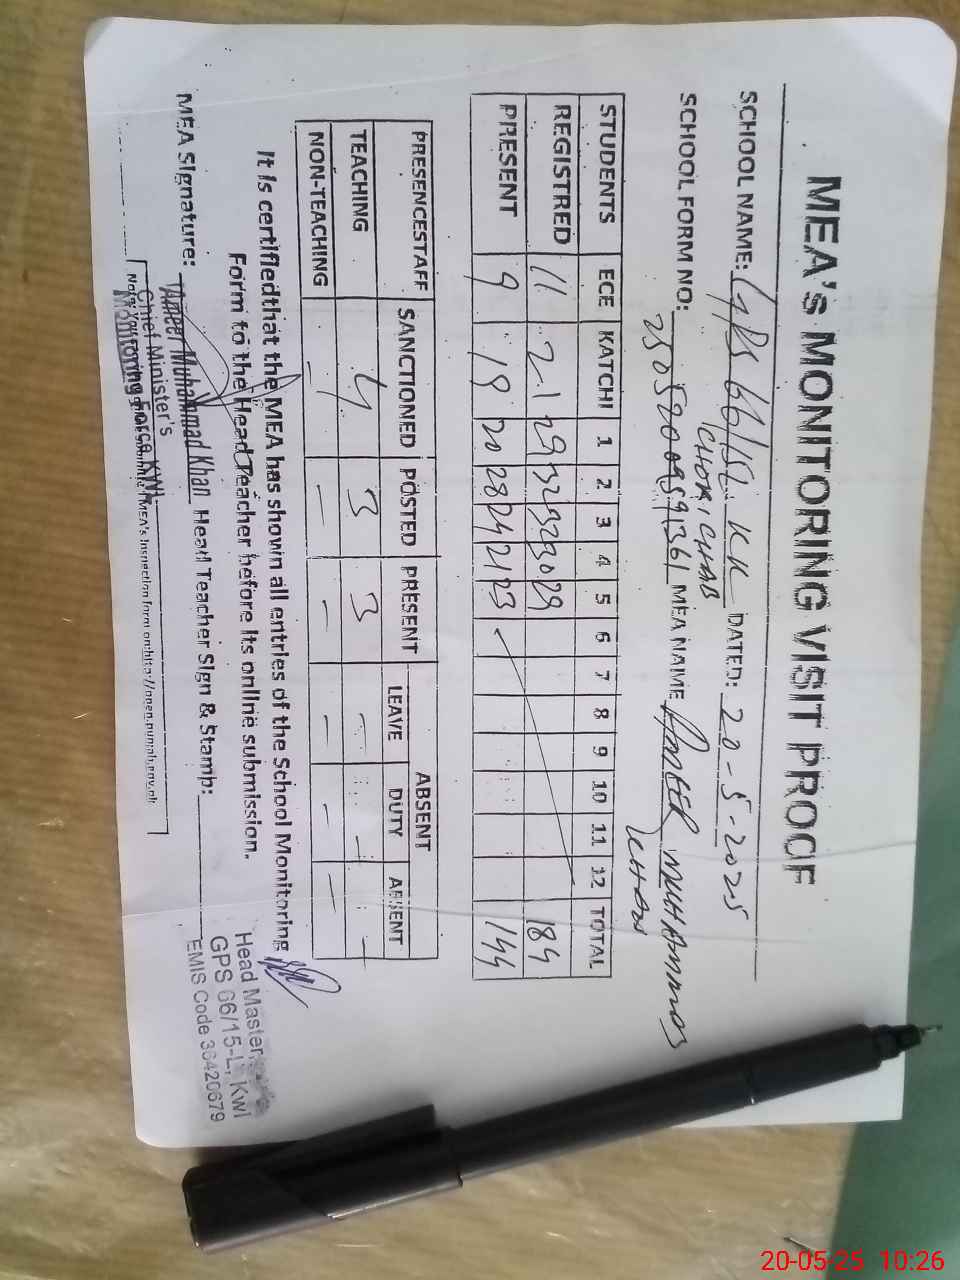 MEA's MONITORING VISIT PROOF
SCHOOL NAME: GPS 66/15L KK DATED: 20-5-2025
SCHOOL FORM NO: MEA NAME AMEER MUHAMMAD
KHAN
STUDENTS ECE KATCHI 1 2 3 4 5 6 7 8 9 10 11 12 TOTAL
REGISTRED 11 21 29 32 32 30 29 184
PRESENT 9 19 20 28 24 21 23 144
PRESENCESTAFF SANCTIONED POSTED PRESENT ABSENT
LEAVE DUTY ABSENT
TEACHING 4 3 3 - - -
NON-TEACHING - - - - - -
It is certifiedthat the MEA has shown all entries of the School Monitoring
Form to the Head Teacher before its online submission.
MEA Signature: Head Teacher Sign & Stamp:
Ameer Muhammad Khan
Chief Minister's
Monitoring Force KWL
Head Master,
GPS 66/15-L, Kwl
EMIS Code 36420679
20-05-25 10:26